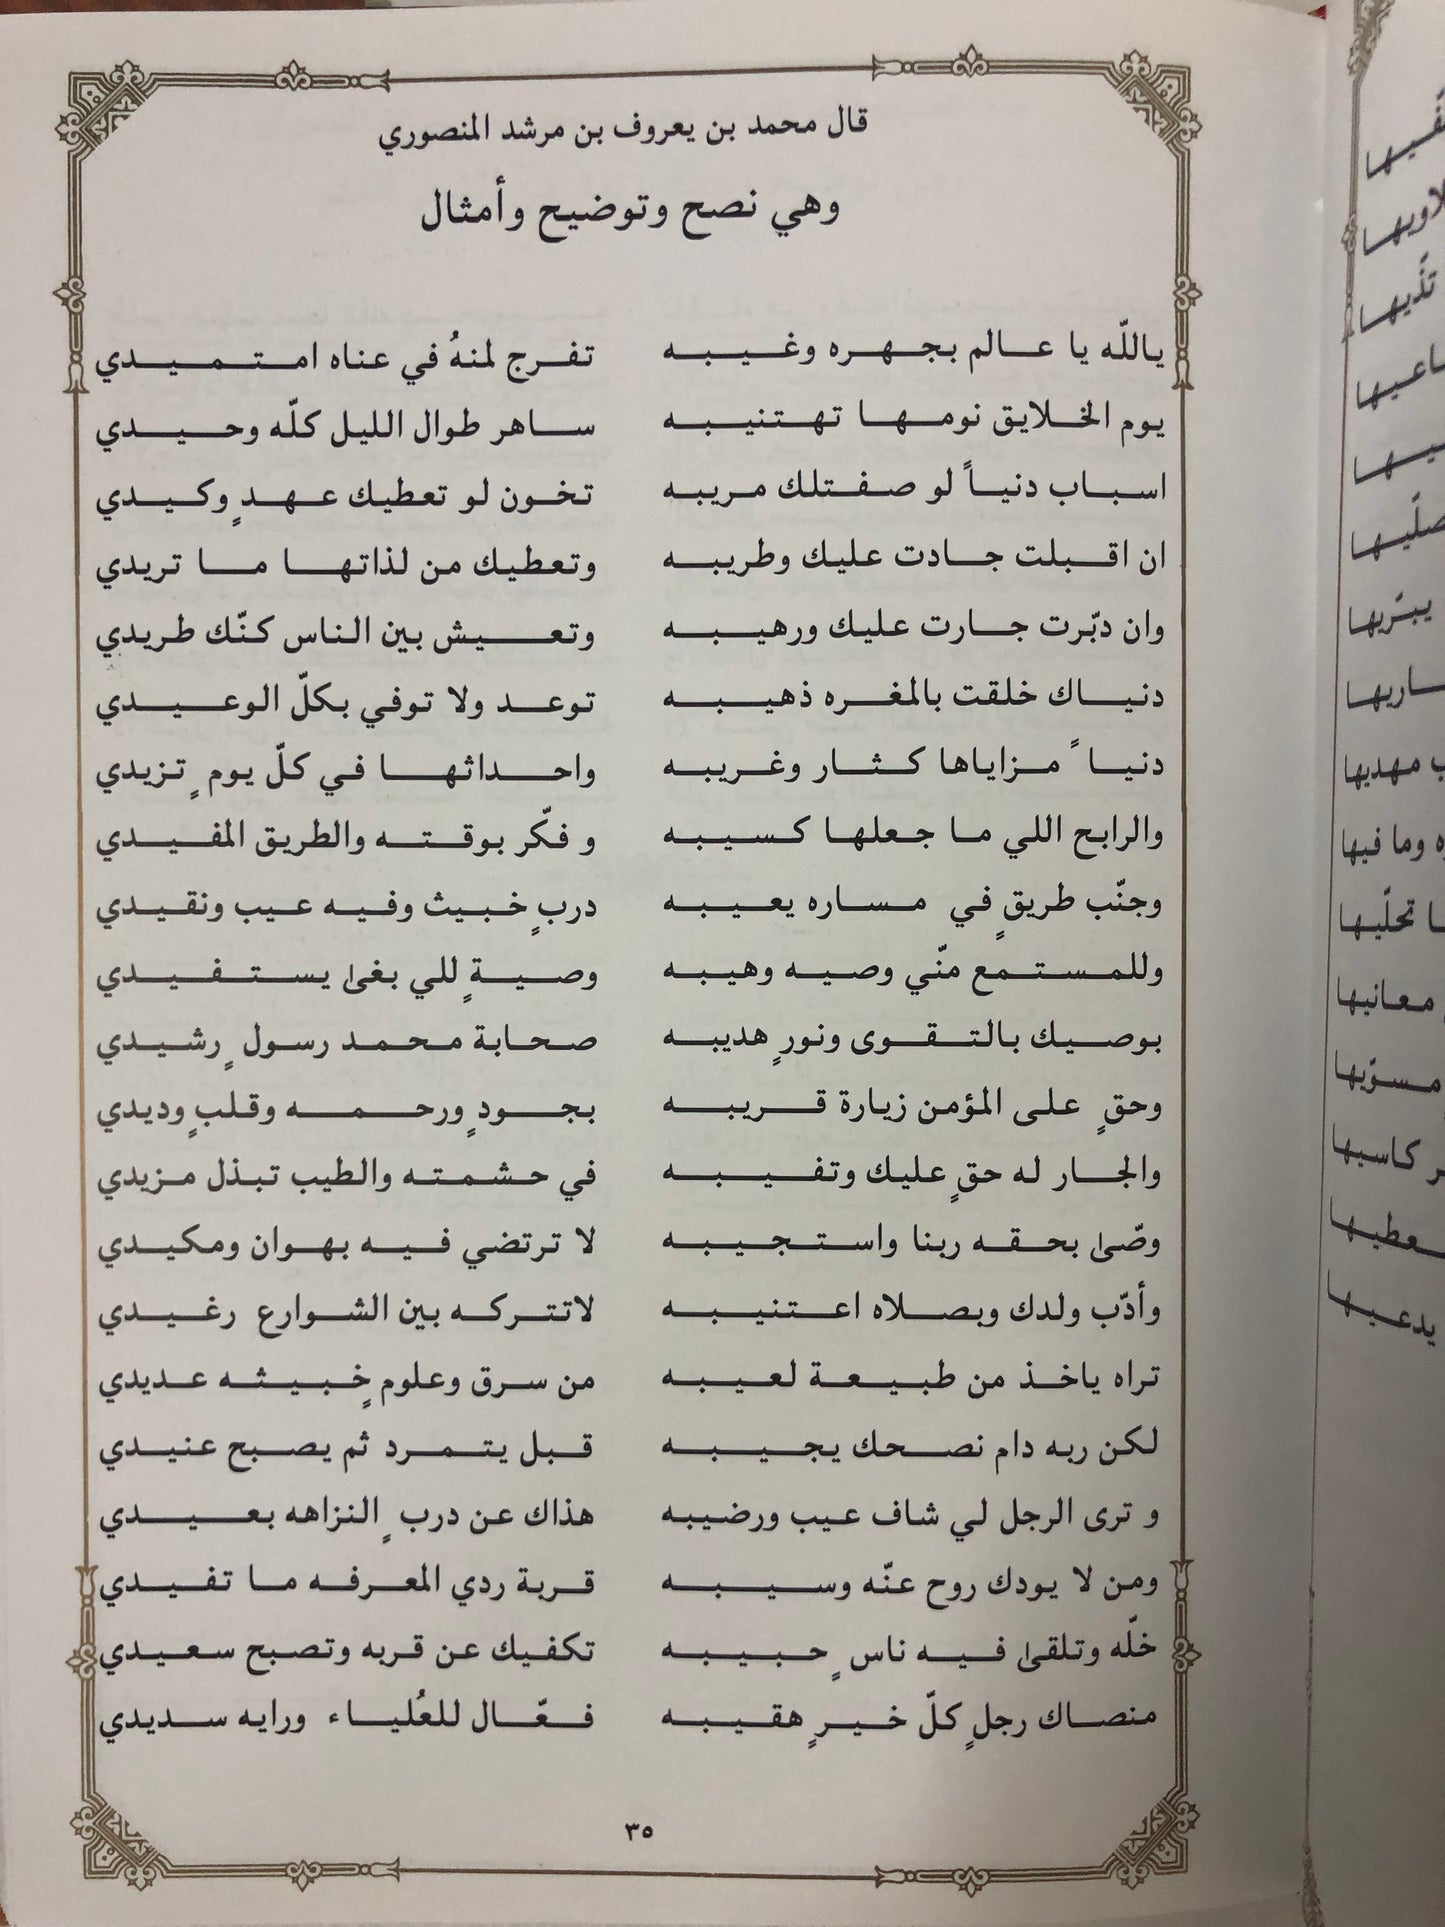 قال محمد بن يعروف بن مرشد المنصوري
وهي نصح وتوضيح وأمثال
ياللّه يا عالم بجهره وغيبه تفرج لمنهُ في عناه امتميدي
يوم الخلايق نومها تهتنيبه ساهر طوال الليل كلّه وحيدي
اسباب دنياً لو صفتلك مريبه تخون لو تعطيك عهدٍ وكيدي
ان اقبلت جادت عليك وطريبه وتعطيك من لذاتها ما تريدي
وان دبّرت جارت عليك ورهيبه وتعيش بين الناس كنّك طريدي
دنياك خلقت بالمغره ذهيبه توعد ولا توفي بكلّ الوعيدي
دنياً مزاياها كثار وغريبه واحداثها في كلّ يومٍ تزيدي
والرابح اللي ما جعلها كسيبه و فكّر بوقته والطريق المفيدي
وجنّب طريقٍ في مساره يعيبه دربٍ خبيث وفيه عيب ونقيدي
وللمستمع منّي وصيه وهيبه وصيةٍ للي بغىٰ يستفيدي
بوصيك بالتقوى ونورٍ هديبه صحابة محمد رسولٍ رشيدي
وحقٍ على المؤمن زيارة قريبه بجودٍ ورحمه وقلبٍ وديدي
والجار له حقٍ عليك وتفيبه في حشمته والطيب تبذل مزيدي
وصّىٰ بحقه ربنا واستجيبه لا ترتضي فيه بهوان ومكيدي
وأدّب ولدك وبصلاه اعتنيبه لاتتركه بين الشوارع رغيدي
تراه ياخذ من طبيعة لعيبه من سرق وعلومٍ خبيثه عديدي
لكن ربه دام نصحك يجيبه قبل يتمرد ثم يصبح عنيدي
و ترى الرجل لي شاف عيب ورضيبه هذاك عن دربٍ النزاهه بعيدي
ومن لا يودك روح عنّه وسيبه قربة ردي المعرفه ما تفيدي
خلّه وتلقىٰ فيه ناسٍ حبيبه تكفيك عن قربه وتصبح سعيدي
منصاك رجلٍ كلّ خيرٍ هقيبه فعّال للعُلياء ورايه سديدي
٣٥